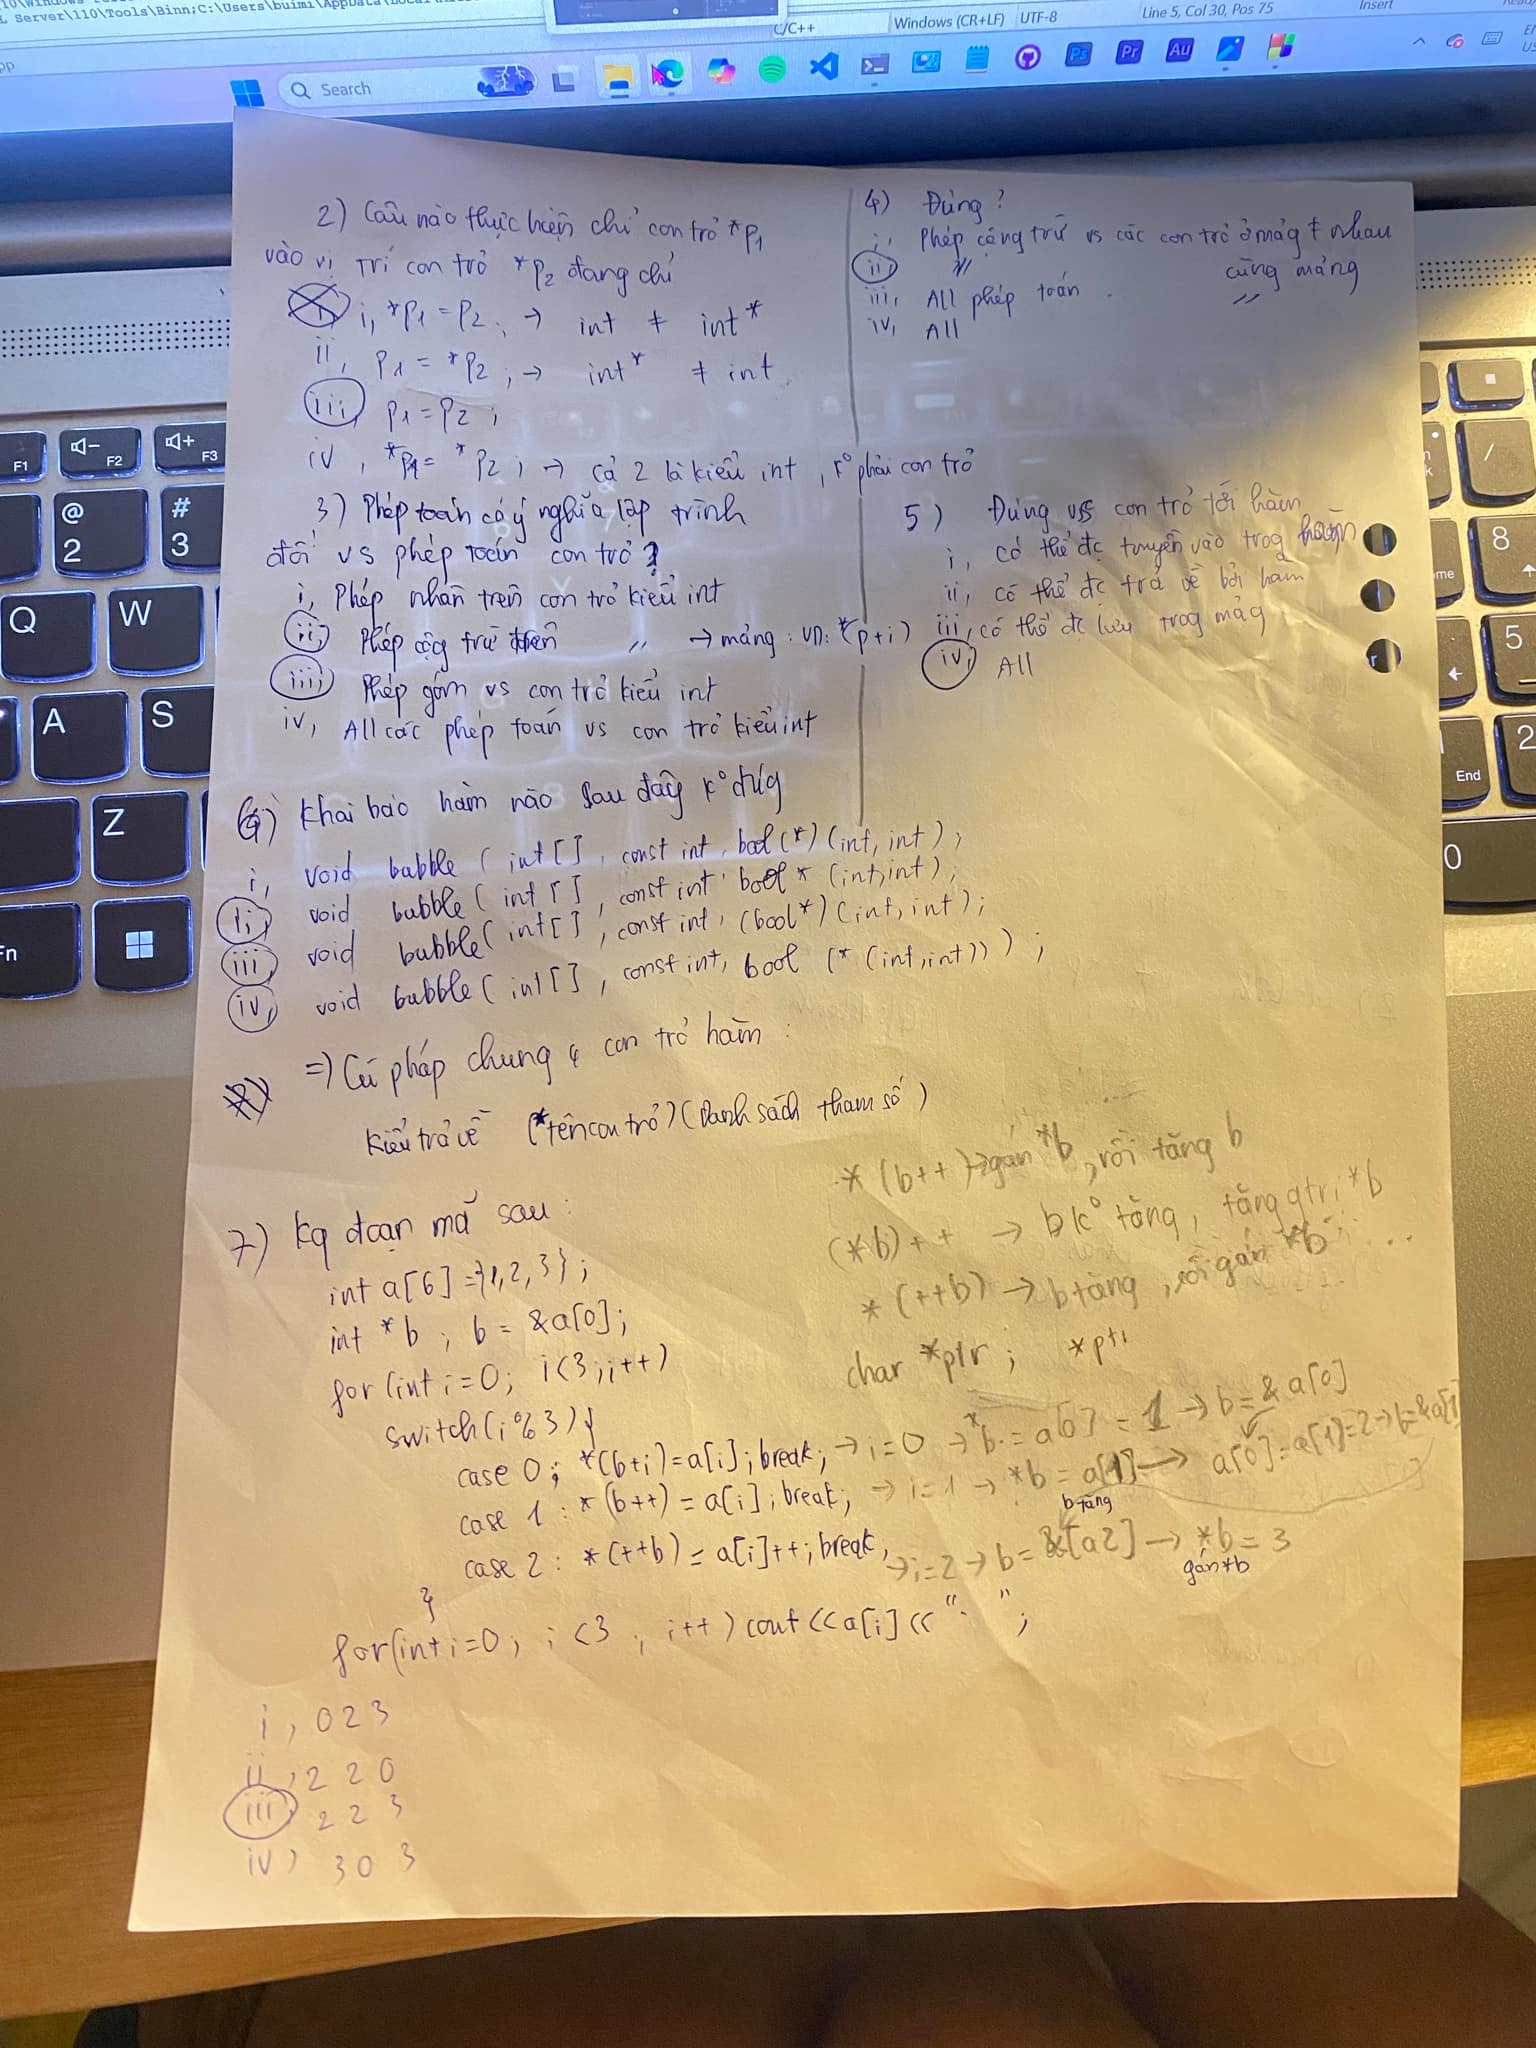 L Server\110\Tools\Binn;C:\Users\buimi\AppData\Local\
C/C++
Windows (CR+LF)
UTF-8
Line 5, Col 30, Pos 75
Insert
Search
2) Câu nào thực hiện chỉ con trỏ *p1
vào vị trí con trỏ *p2 đang chỉ
i, *p1 = p2; → int ≠ int*
ii, p1 = *p2; → int* ≠ int
iii, p1 = p2;
iv, *p1 = *p2; → cả 2 là kiểu int, k° phải con trỏ
3) Phép toán có ý nghĩa lập trình
đối vs phép toán con trỏ?
i, Phép nhân trên con trỏ kiểu int
ii, Phép cộg trừ trên 〃 → mảng: VD: *(p+i)
iii, Phép gán vs con trỏ kiểu int
iv, All các phép toán vs con trỏ kiểu int
4) Đúng?
i, Phép cộng trừ vs các con trỏ ở mảg ≠ nhau
ii, 〃 cùng mảng
iii, All phép toán 〃
iv, All
5) Đúng vs con trỏ tới hàm
i, có thể đc truyền vào trog hàm
ii, có thể đc trả về bởi hàm
iii, có thể đc lưu trog mảg
iv, All
6) Khai báo hàm nào sau đây k° đúg
i, void bubble ( int[], const int, bool(*)(int, int);
ii, void bubble( int[], const int, bool * (int,int);
iii, void bubble( int[], const int, (bool*)(int, int);
iv, void bubble( int[], const int, bool (* (int,int)));
=) Cú pháp chung con trỏ hàm:
Kiểu trả về (*tên con trỏ)(Danh sách tham số)
*(b++)→gán *b, rồi tăng b
(*b)++ → b k° tăng, tăng gtrị *b
*(++b) → b tăng, rồi gán *b
char *ptr; *ptr
7) Kq đoạn mã sau:
int a[6]={1,2,3};
int *b; b = &a[0];
for(int i=0; i<3;i++)
switch(i%3){
case 0: *(b+i)=a[i];break; → i=0 → *b = a[0] = 1 → b = & a[0]
case 1: *(b++) = a[i];break; → i=1 → *b = a[1] → a[0]=a[1]=2→b=&a[1]
b tăng
case 2: *(++b) = a[i]++;break; → i=2 → b = &[a2] → *b = 3
gán *b
}
for(int i=0; i<3; i++) cout<<a[i]<<" ";
i, 0 2 3
ii, 2 2 0
iii, 2 2 3
iv) 3 0 3
F1
F2
F3
@
2
#
3
Q
W
A
S
Z
Fn
8
5
2
0
End